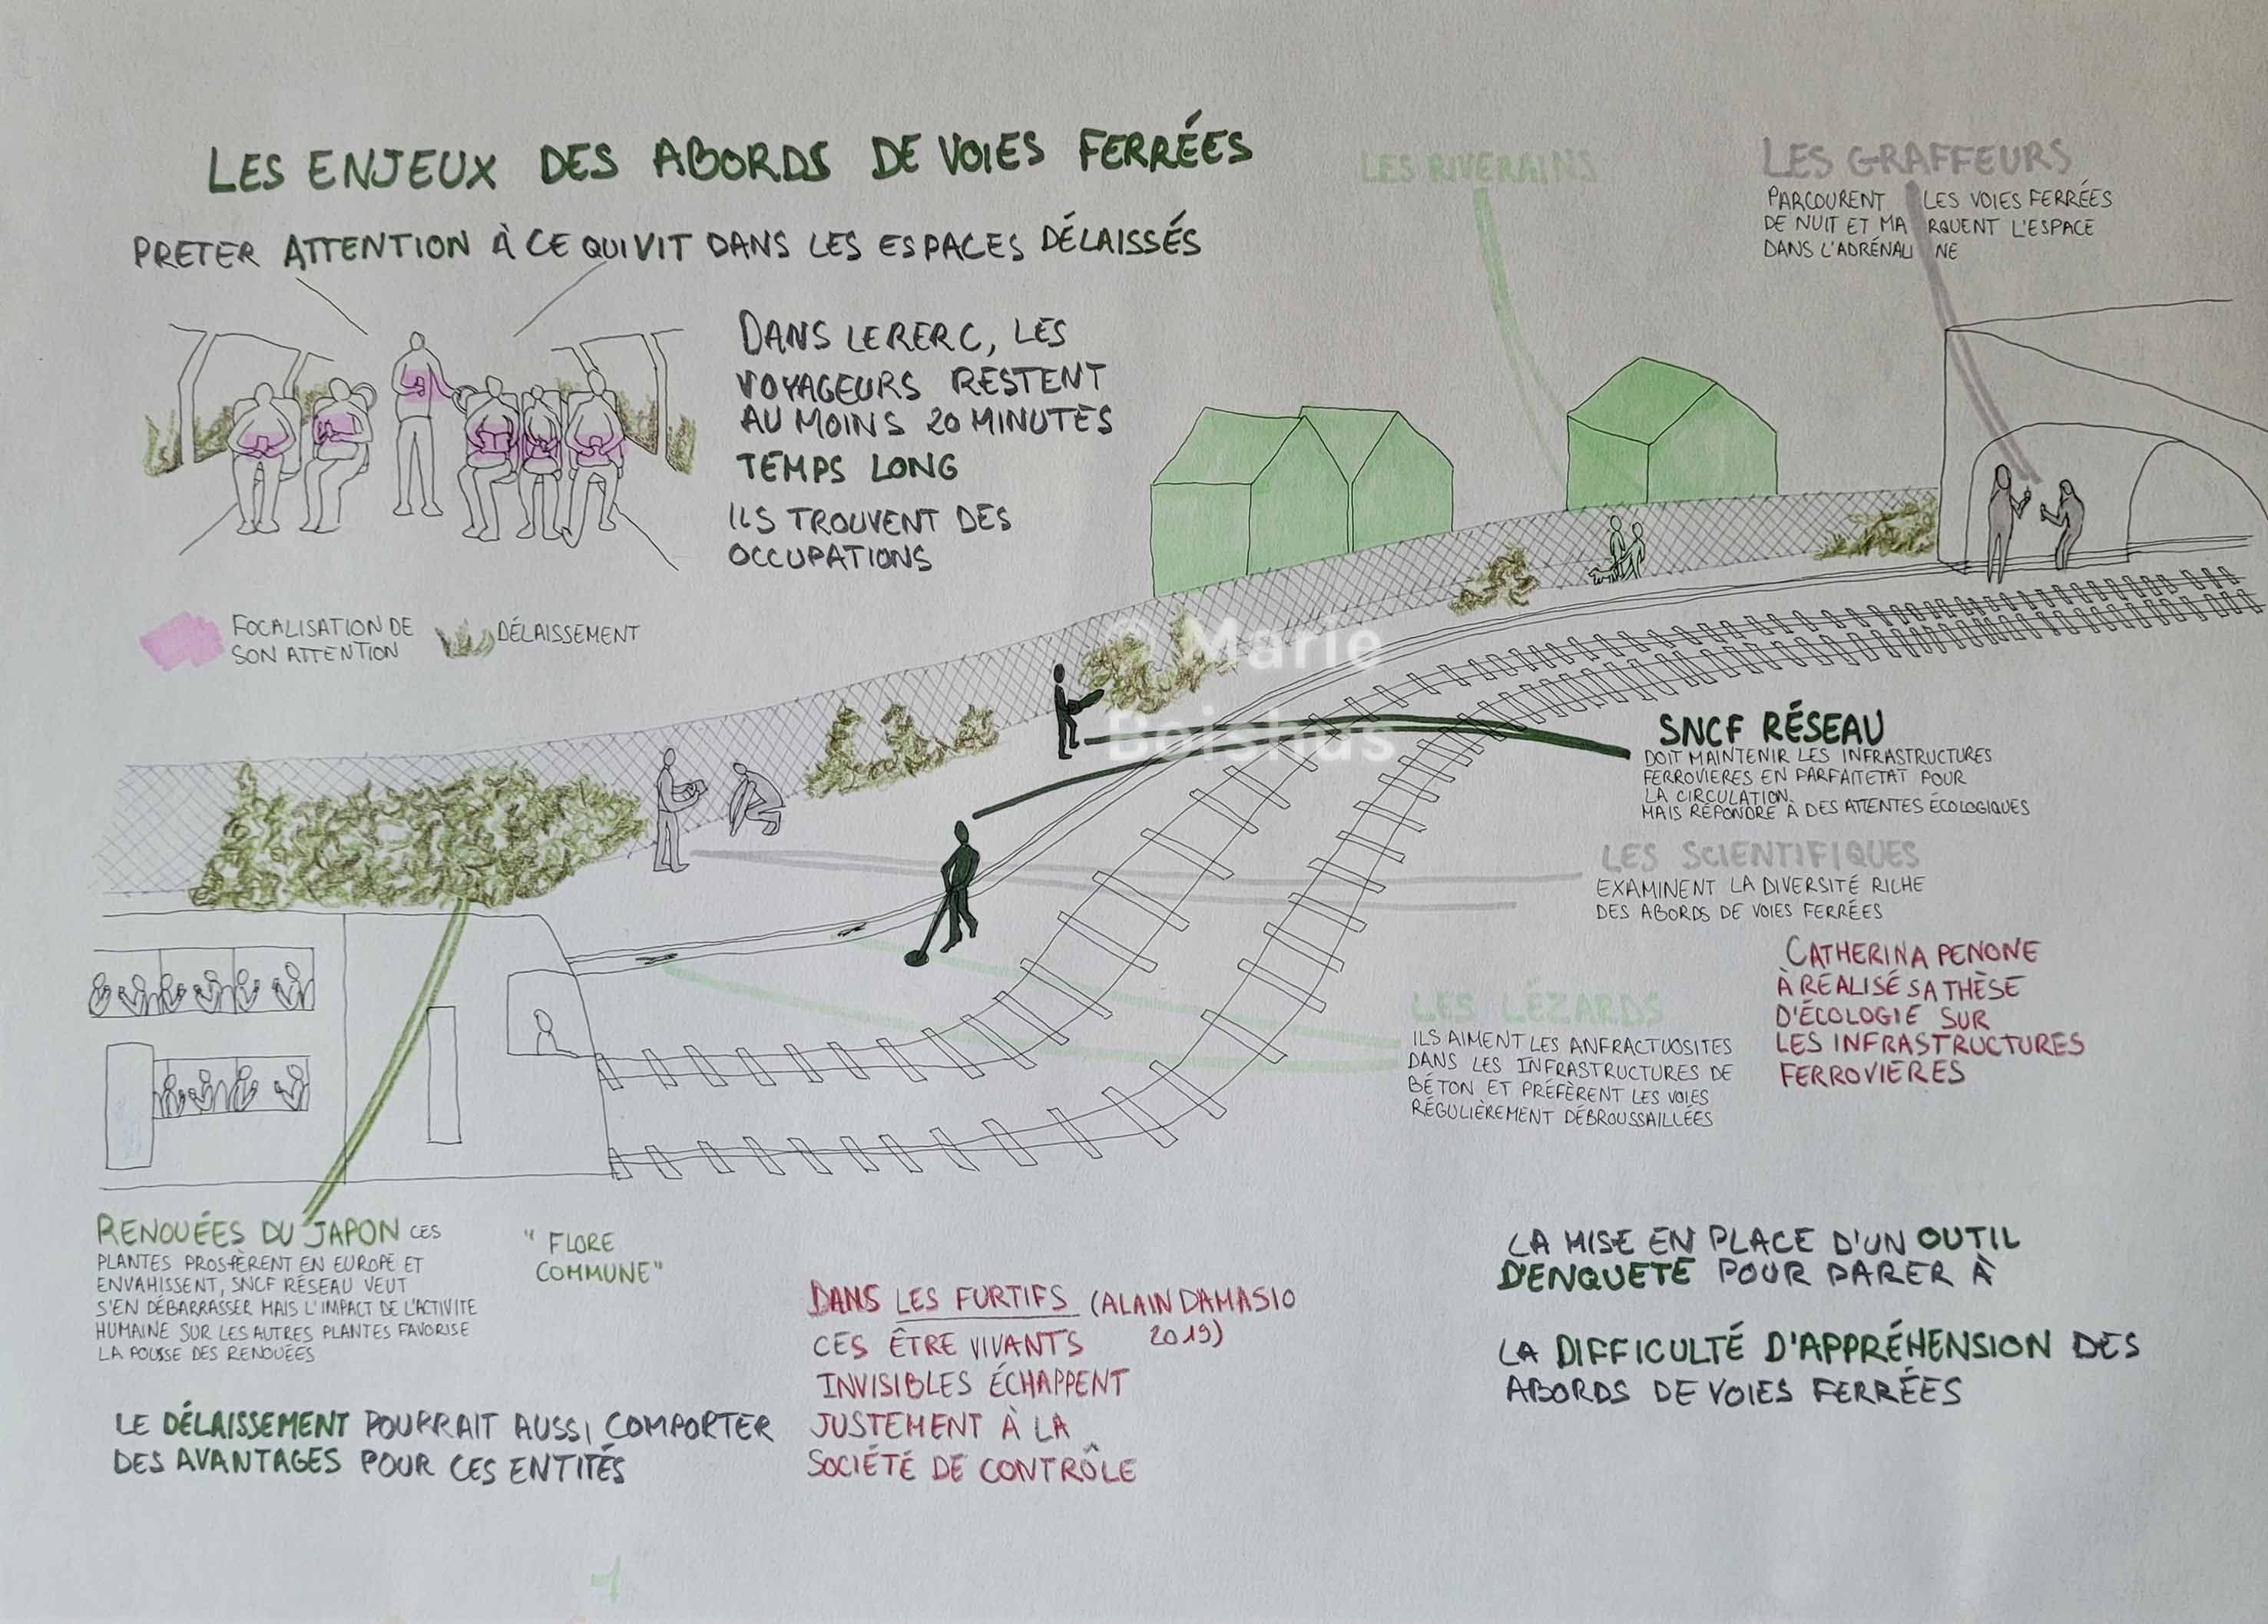 LES ENJEUX DES ABORDS DE VOIES FERRÉES
PRETER ATTENTION À CE QUI VIT DANS LES ESPACES DÉLAISSÉS
DANS LE RER C, LES
VOYAGEURS RESTENT
AU MOINS 20 MINUTES
TEMPS LONG
ILS TROUVENT DES
OCCUPATIONS
FOCALISATION DE
SON ATTENTION
DÉLAISSEMENT
LES RIVERAINS
LES GRAFFEURS
PARCOURENT LES VOIES FERRÉES
DE NUIT ET MARQUENT L'ESPACE
DANS L'ADRÉNALINE
© Marie
Boishus
SNCF RÉSEAU
DOIT MAINTENIR LES INFRASTRUCTURES
FERROVIERES EN PARFAIT ETAT POUR
LA CIRCULATION.
MAIS RÉPONDRE À DES ATTENTES ÉCOLOGIQUES
LES SCIENTIFIQUES
EXAMINENT LA DIVERSITÉ RICHE
DES ABORDS DE VOIES FERRÉES
CATHERINA PENONE
À RÉALISÉ SA THÈSE
D'ÉCOLOGIE SUR
LES INFRASTRUCTURES
FERROVIERES
LES LÉZARDS
ILS AIMENT LES ANFRACTUOSITES
DANS LES INFRASTRUCTURES DE
BÉTON ET PRÉFÈRENT LES VOIES
RÉGULIÈREMENT DÉBROUSSAILLÉES
RENOUÉES DU JAPON CES
PLANTES PROSPÈRENT EN EUROPE ET
ENVAHISSENT, SNCF RÉSEAU VEUT
S'EN DÉBARRASSER MAIS L'IMPACT DE L'ACTIVITE
HUMAINE SUR LES AUTRES PLANTES FAVORISE
LA POUSSE DES RENOUÉES
"FLORE
COMMUNE"
LE DÉLAISSEMENT POURRAIT AUSSI COMPORTER
DES AVANTAGES POUR CES ENTITÉS
DANS LES FURTIFS (ALAIN DAMASIO
2019)
CES ÊTRE VIVANTS
INVISIBLES ÉCHAPPENT
JUSTEMENT À LA
SOCIÉTÉ DE CONTRÔLE
LA MISE EN PLACE D'UN OUTIL
D'ENQUETE POUR PARER À
LA DIFFICULTÉ D'APPRÉHENSION DES
ABORDS DE VOIES FERRÉES